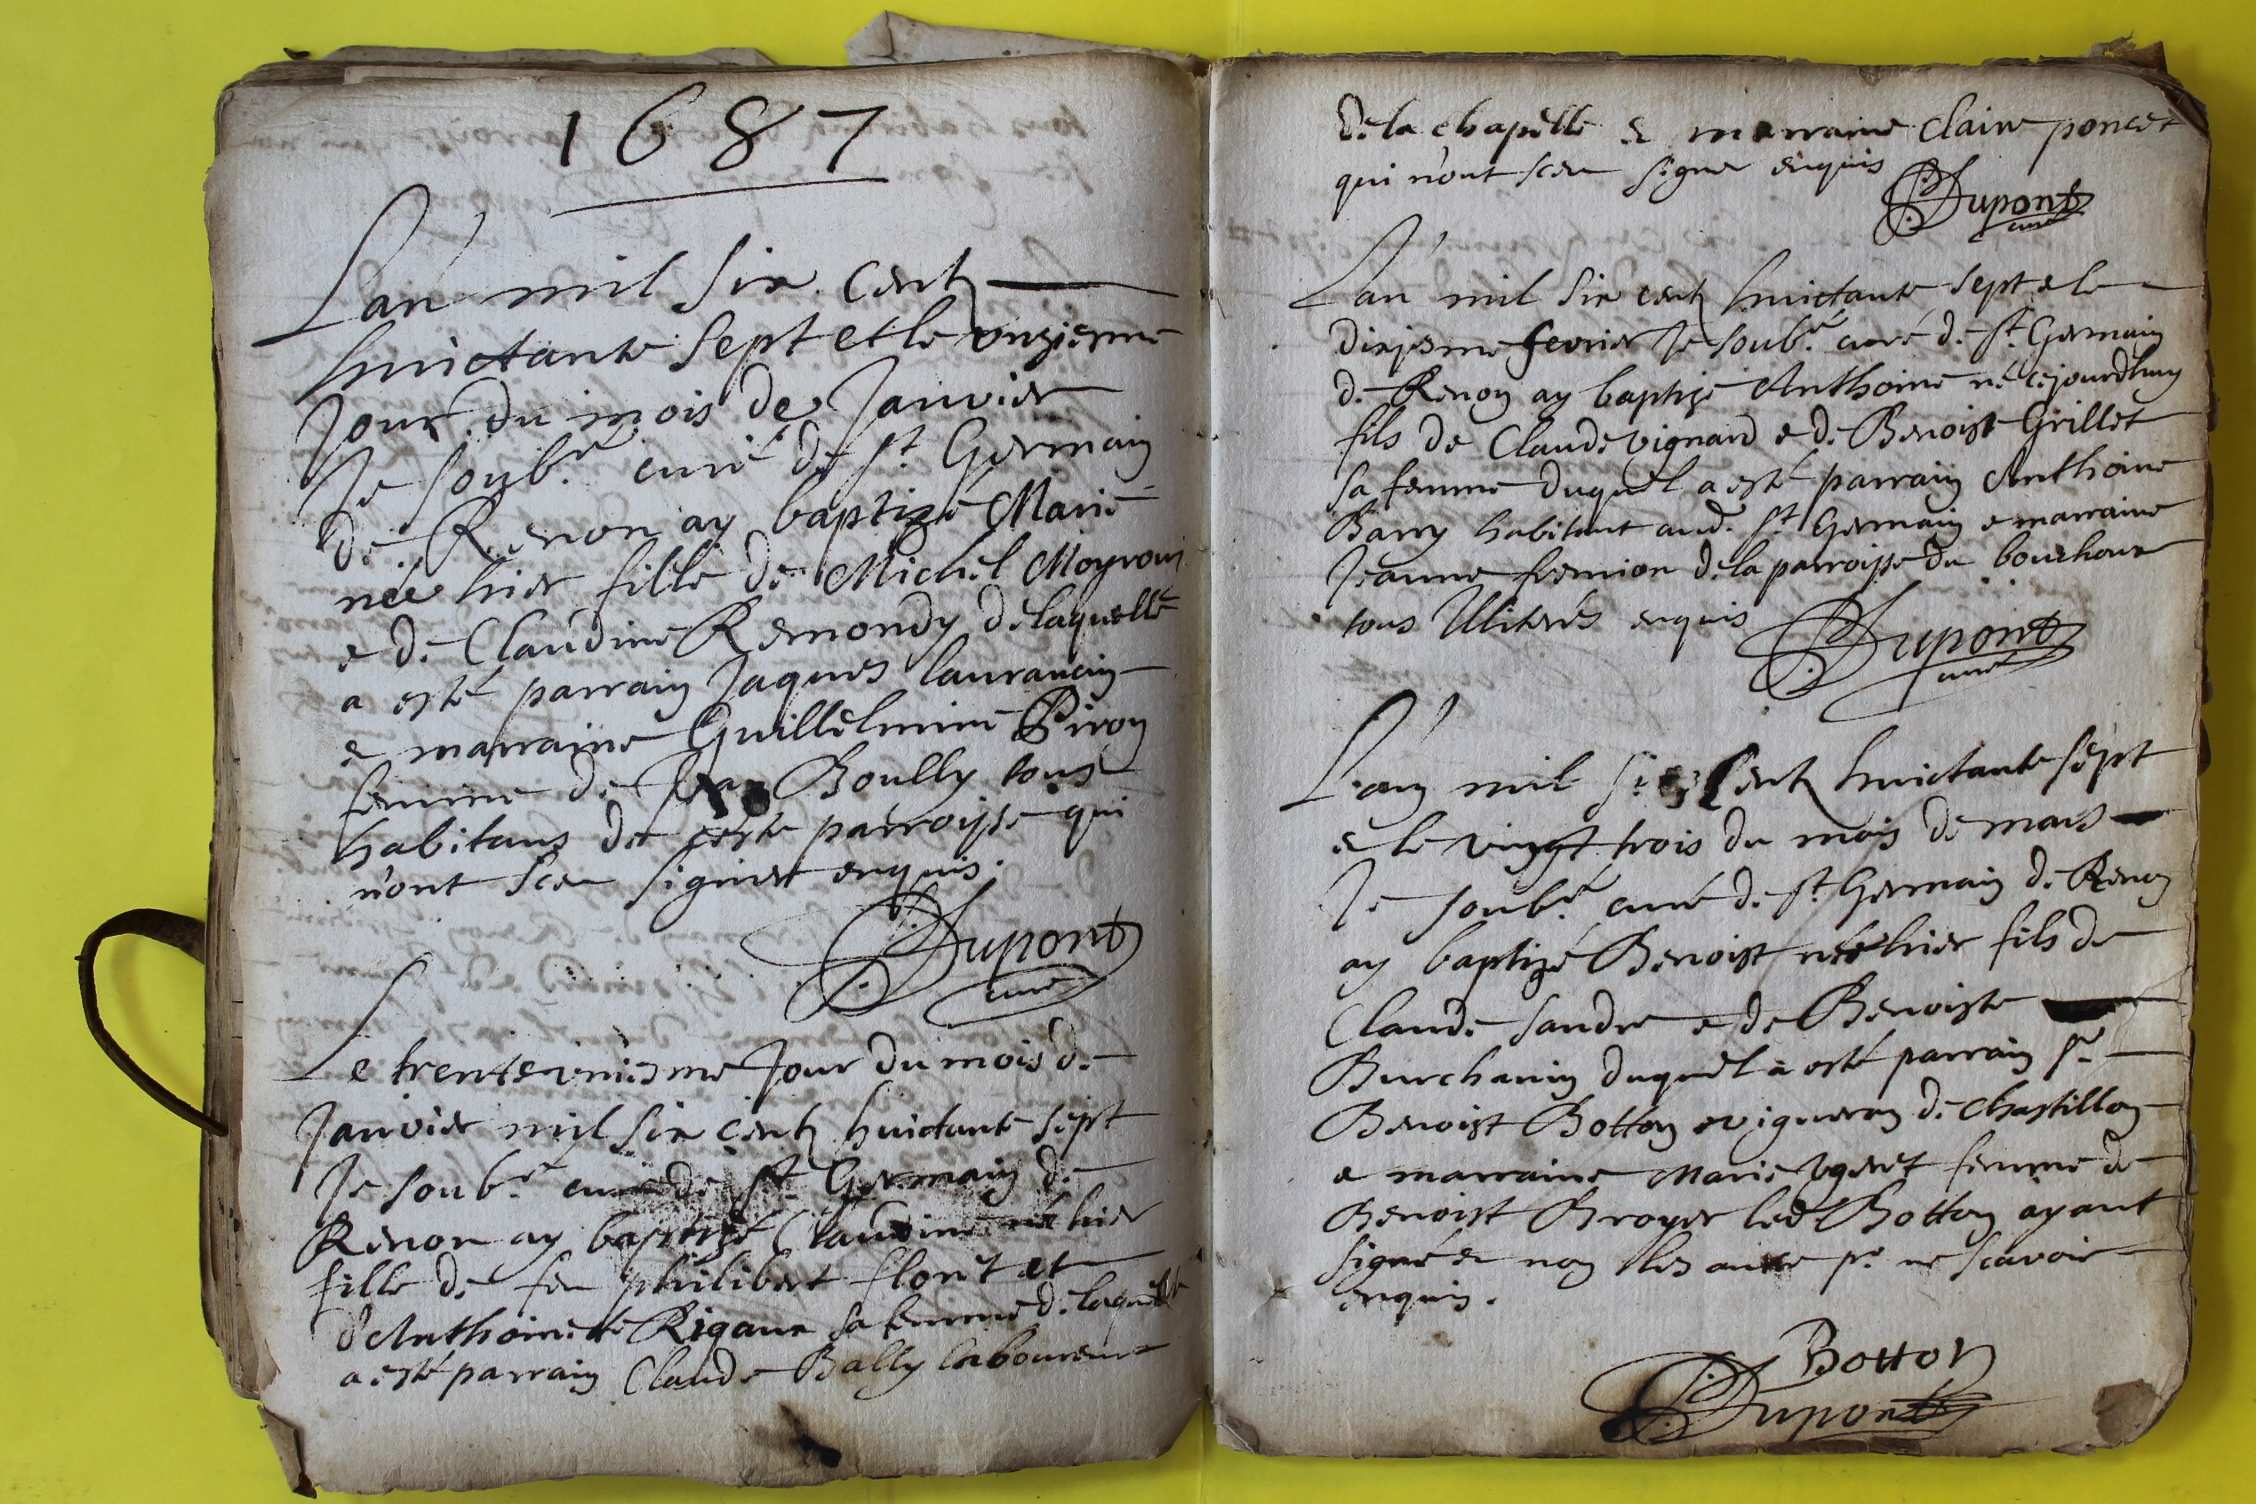 1687
Lan mil six cent
huictante sept et le unzieme
Jour du mois de Janvier
Je soub.é curé de St Germain
de Renon ay baptizé Marie
née hier fille de Michel Moyroux
e de Claudine Remondy de laquelle
a esté parrain Jaques laurancin
e marraine Guillelmine Piron
femme de Boully tous
habitans de ceste parroisse qui
n'ont sceu signer enquis.
Dupont
curé
Le trente uniesme Jour du mois de
Janvier mil six cent huictante sept
Je soub.é curé de St Germain de
Renon ay baptizé Claudine né hier
fille de feu philibert floret et
d'Anthoinette Rigaux sa femme de laquelle
a esté parrain Claude Bally laboureur
de la chapelle e marraine Claire poncet
qui n'ont sceu signer enquis
Dupont
curé
L'an mil six cent huictante sept e le
dixiesme fevrier Je soub.é curé de St Germain
de Renon ay baptizé Anthoine né cejourdhuy
fils de Claude vignard e de Benoist Grillet
sa femme duquel a esté parrain Anthoine
Barry habitant aud. St Germain e marraine
Jeanne fremion de la parroisse du bouchoux
tous Illiterés enquis
Dupont
curé
L'an mil six cent huictante sept
e le vingt trois du mois de mars
Je soub.é curé de St Germain de Renon
ay baptizé Benoist né hier fils de
Claude sandre e de Benoiste
Burchanin duquel a esté parrain Sr
Benoist Botton vigneron de Chastillon
e marraine Marie Ugeret femme de
Benoist Broyer led Botton ayant
signé e non les autre pr ne scavoir
enquis.
Botton
Dupont